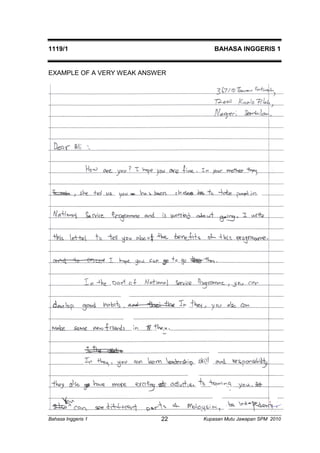 1119/1 BAHASA INGGERIS 1
EXAMPLE OF A VERY WEAK ANSWER
Negeri Sembilan.
Dear Ali :
How are you? I hope you are fine. In your mother
she tell us you has been to take part in
National Service Programme and is worried about going. I write
this letter to tell you about the benefits of this programme.
I hope you can go to go
In the part of National Service Programme, you can
develop good habits, In you also can
make some new friends in
In you can learn leadership skill and responsibility.
they also have more exciting activities to you.
You can different parts Malaysia,
Bahasa Inggeris 1 22 Kupasan Mutu Jawapan SPM 2010